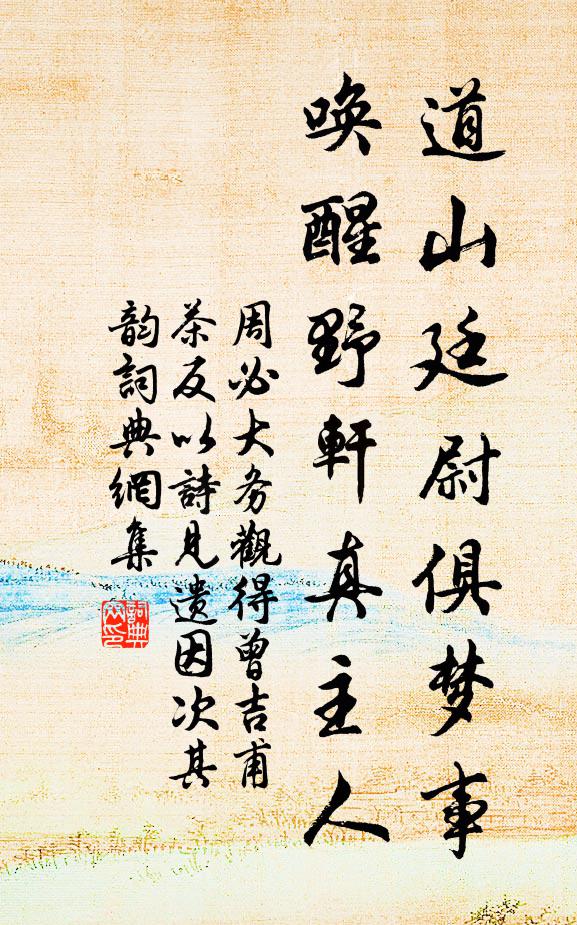 道山廷尉俱梦事
唤醒野軒真主人
周必大务觀得曾吉甫
茶反以詩見遗因次其
韵詞典網集
詞典